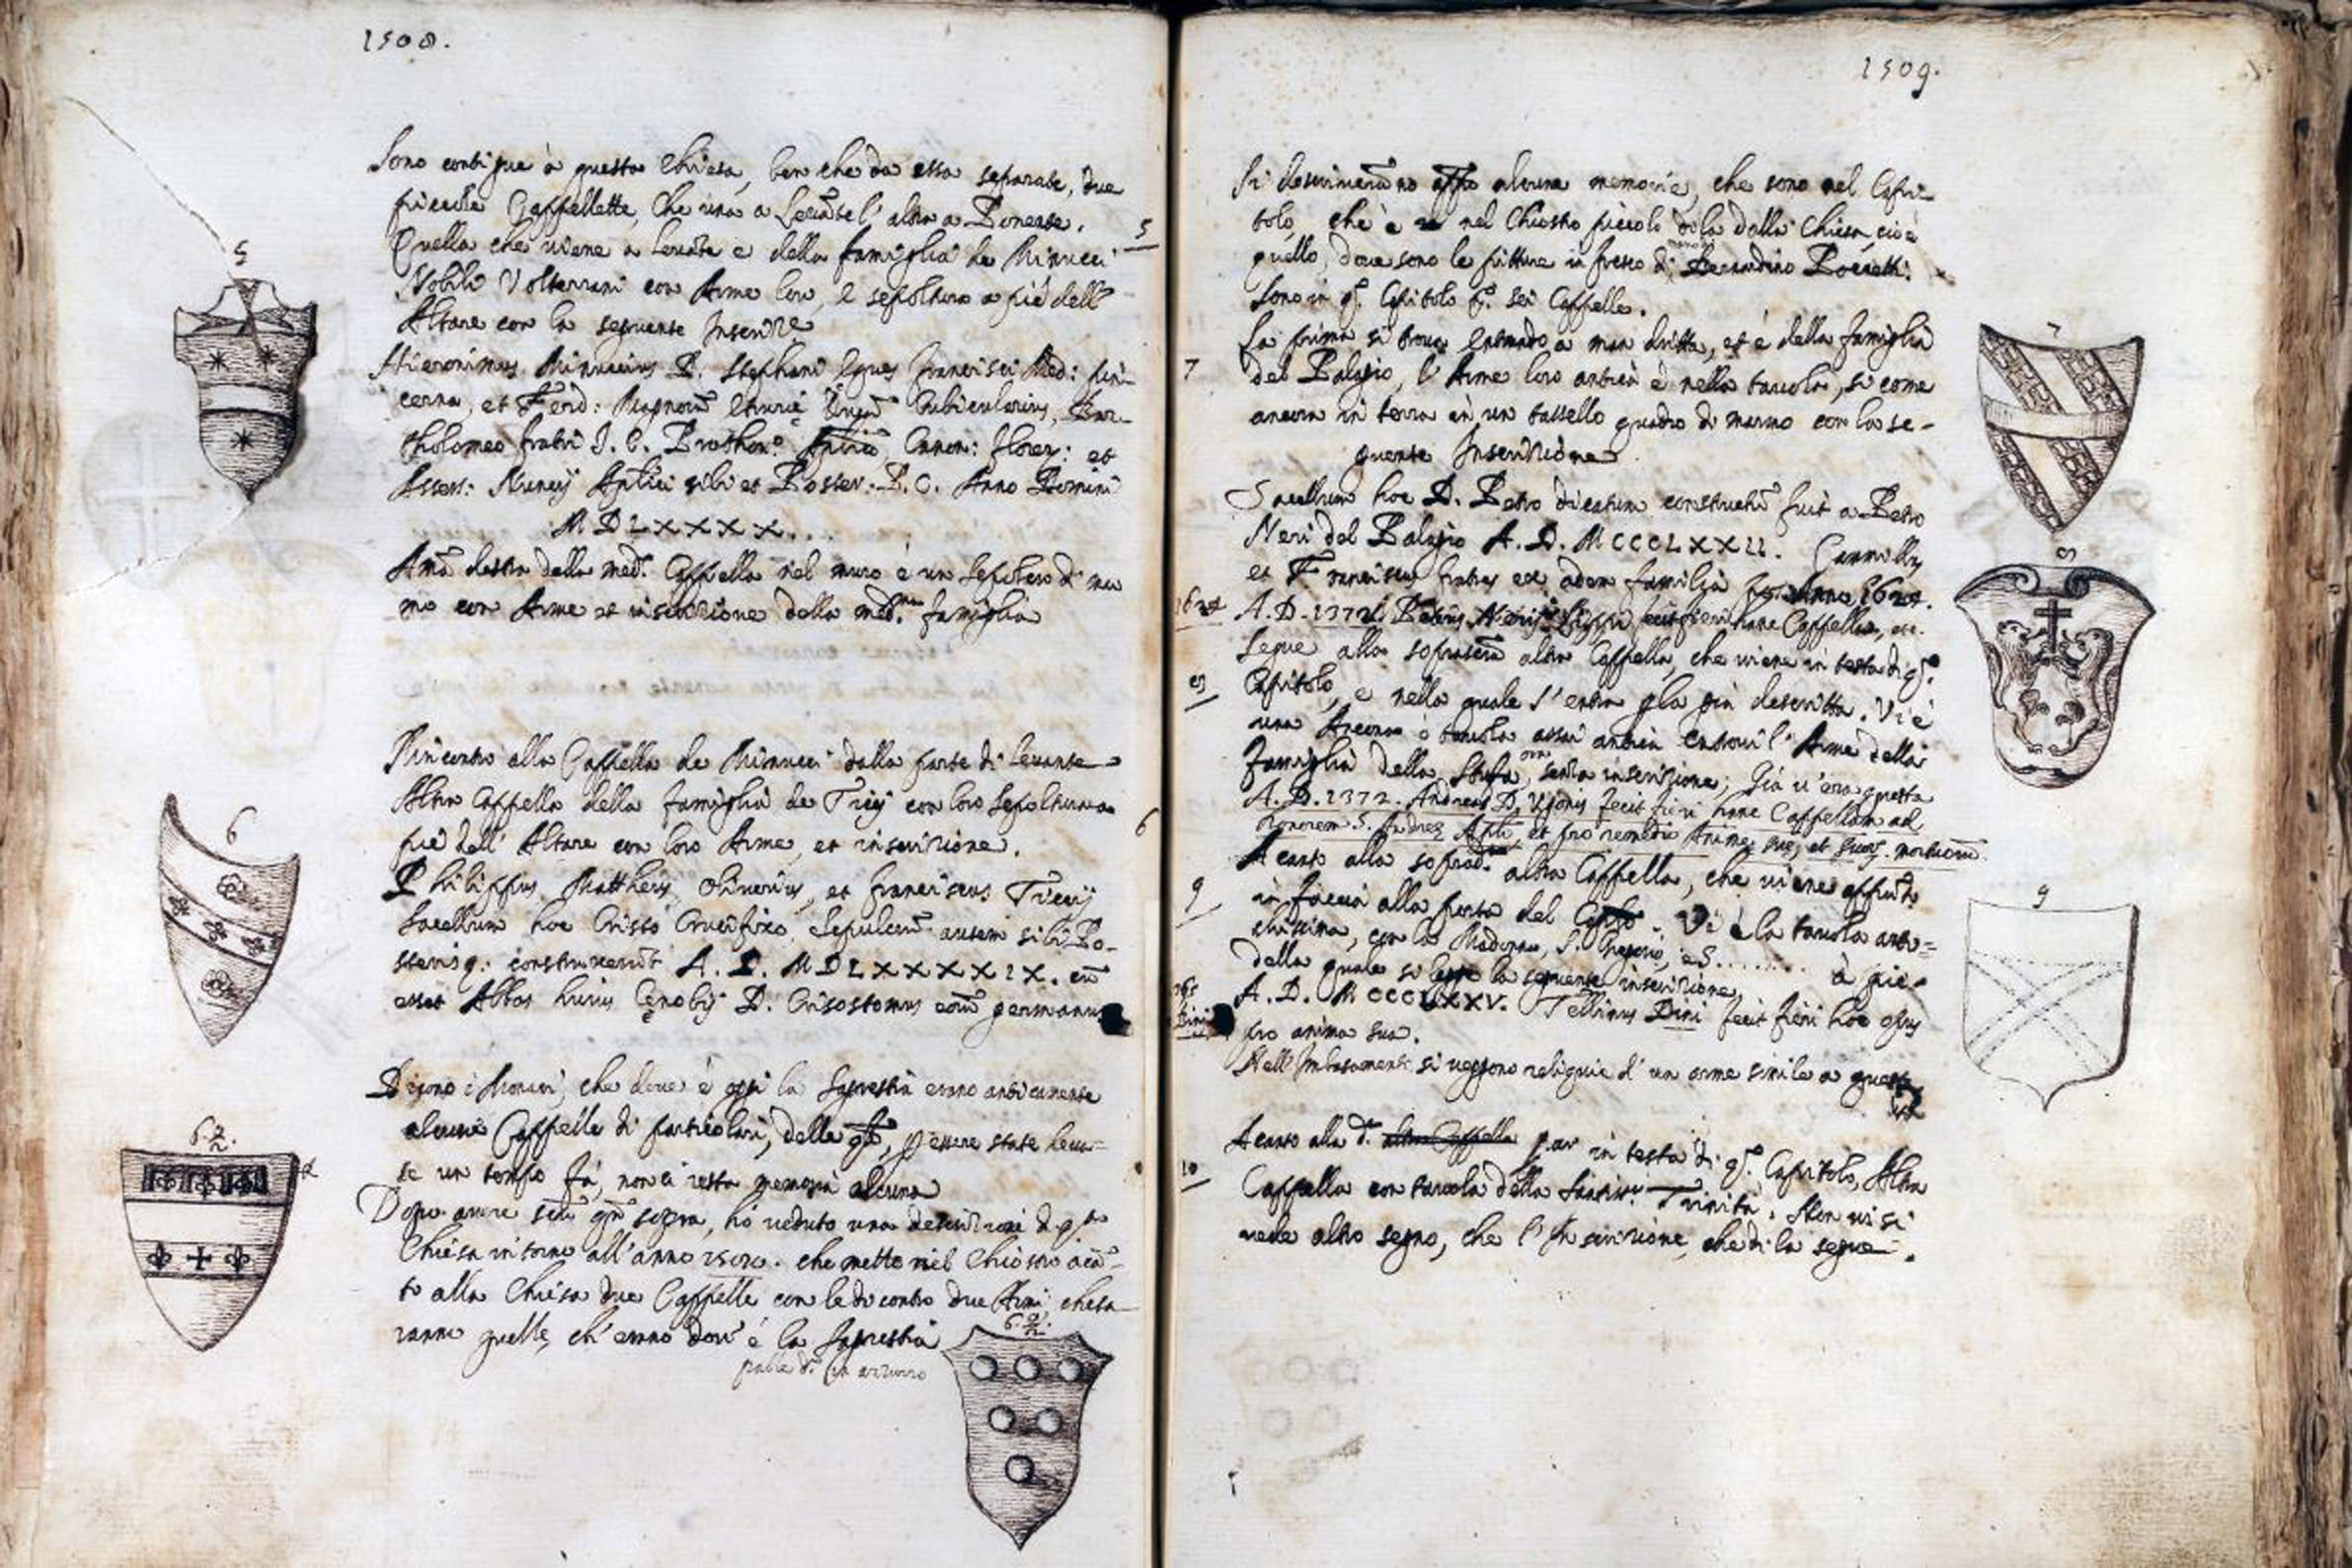 1508.
Sono contigue à questa Chiesa, ben che da essa separate, due
piccole Cappellette, Che una a Levāte l'altra a Ponente.
5
Quella che viene a levāte è della famiglia de Minucci
Nobili Volterrani con Arme loro, e sepoltura a piè dell'
Altare con la seguente Inscriz.e
Hieronimus Minuccius D. Stephani Eques Francisci Med: pin-
cerna, et Ferd: Magnorū Etrurię Cubicularius, Bar-
tholomeo fratri J. C. Prothon.o Canon: floren: et
Assess: Nuncij Aplici sibi et Poster. P. C. Anno Domini
MDLXXXX....
A mā destra della med. Cappella nel muro è un Sepolcro di mar
mo con Arme et inscrizione della med.ma famiglia
Rincontro alla Cappella de Minucci dalla parte di levante
Altra Cappella della famiglia de Tricij con loro Sepoltura a
6
piè dell' Altare con loro Arme, et inscrizione.
Philippus, Mattheus, Oliverius, et Franciscus Tricij
Sacellum hoc Cristo Crucifixo, Sepulcrū autem sibi Po-
sterisq: construxerūt A. D. MDLXXXXIX. cū
esset Abbas huius Cenobij D. Crisostomus eorū germanus
Dicono i Monaci, che dove è oggi la Sagrestia erano anticamente
alcune Cappelle di particolari, delle q.li, p essere state leva-
te un tempo fà, non ci resta memoria alcuna
Dopo avere scū qn̄ sopra, hò veduto una descrizione di q.sta
Chiesa intorno all'anno che mette nel Chiostro acā-
to alla Chiesa due Cappelle con le di contro due Armi, che sa-
ranno quelle, ch' erano dov' è la Sagrestia
palle d'. in azzurro
5
6
6.
6.
1509.
Si descriveranno app.o alcune memorie, che sono nel Capi-
tolo, che è nel Chiostro piccolo dalla Chiesa, cioè
quello, dove sono le pitture in fresco di Bernardino Poccetti.
Sono in q.o Capitolo sei Cappelle.
La prima si trova entrando a man dritta, et è della famiglia
7
del Palagio, l'Arme loro antica è nella tavola, si come
ancora in terra in un tassello quadro di marmo con la se-
guente Inscrizione
Sacellum hoc D. Petro dicatum constructū fuit a Petro
Neri del Palagio A. D. MCCCLXXII. Cammillus
et Franciscus fratres ex adem familia Anno 1624.
A.D. 1372. Petrus Neris fecit fieri hanc Cappellā, etc.
Segue alla sopradetta altra Cappella, che viene in testa di q.o
8
Capitolo, e nella quale s'entra p la già descritta. Vi è
una Ancona ò tavola assai antica entrovi l'Arme della
famiglia della Stufa, senza inscrizione; Già v'era questa
A.D. 1372. Andreas D. Ugonis fecit fieri hanc Cappellam ad
honorem S. Andreę Apli, et pro remedio Animę suę, et suor. mortuorū.
Acanto alla soprad. altra Cappella, che viene appunto
9
in faccia alla porta del Vi è la tavola anti=
chissima, con la Madonna, S. Gregorio, e S........ à piè
della quale si legge la seguente inscrizione
A. D. MCCCLXXV. Tellinus Dini fecit fieri hoc opus
Dini
pro anima sua.
Nell'Imbasamento si veggono reliquie d'un arme simile a questa
Acanto alla d. altra Cappella par in testa di q.o Capitolo, Altra
10
Cappella con tavola della Santiss. Trinità. Non vi si
vede altro segno, che l'Inscrizione, che di la segue.
7
8
9